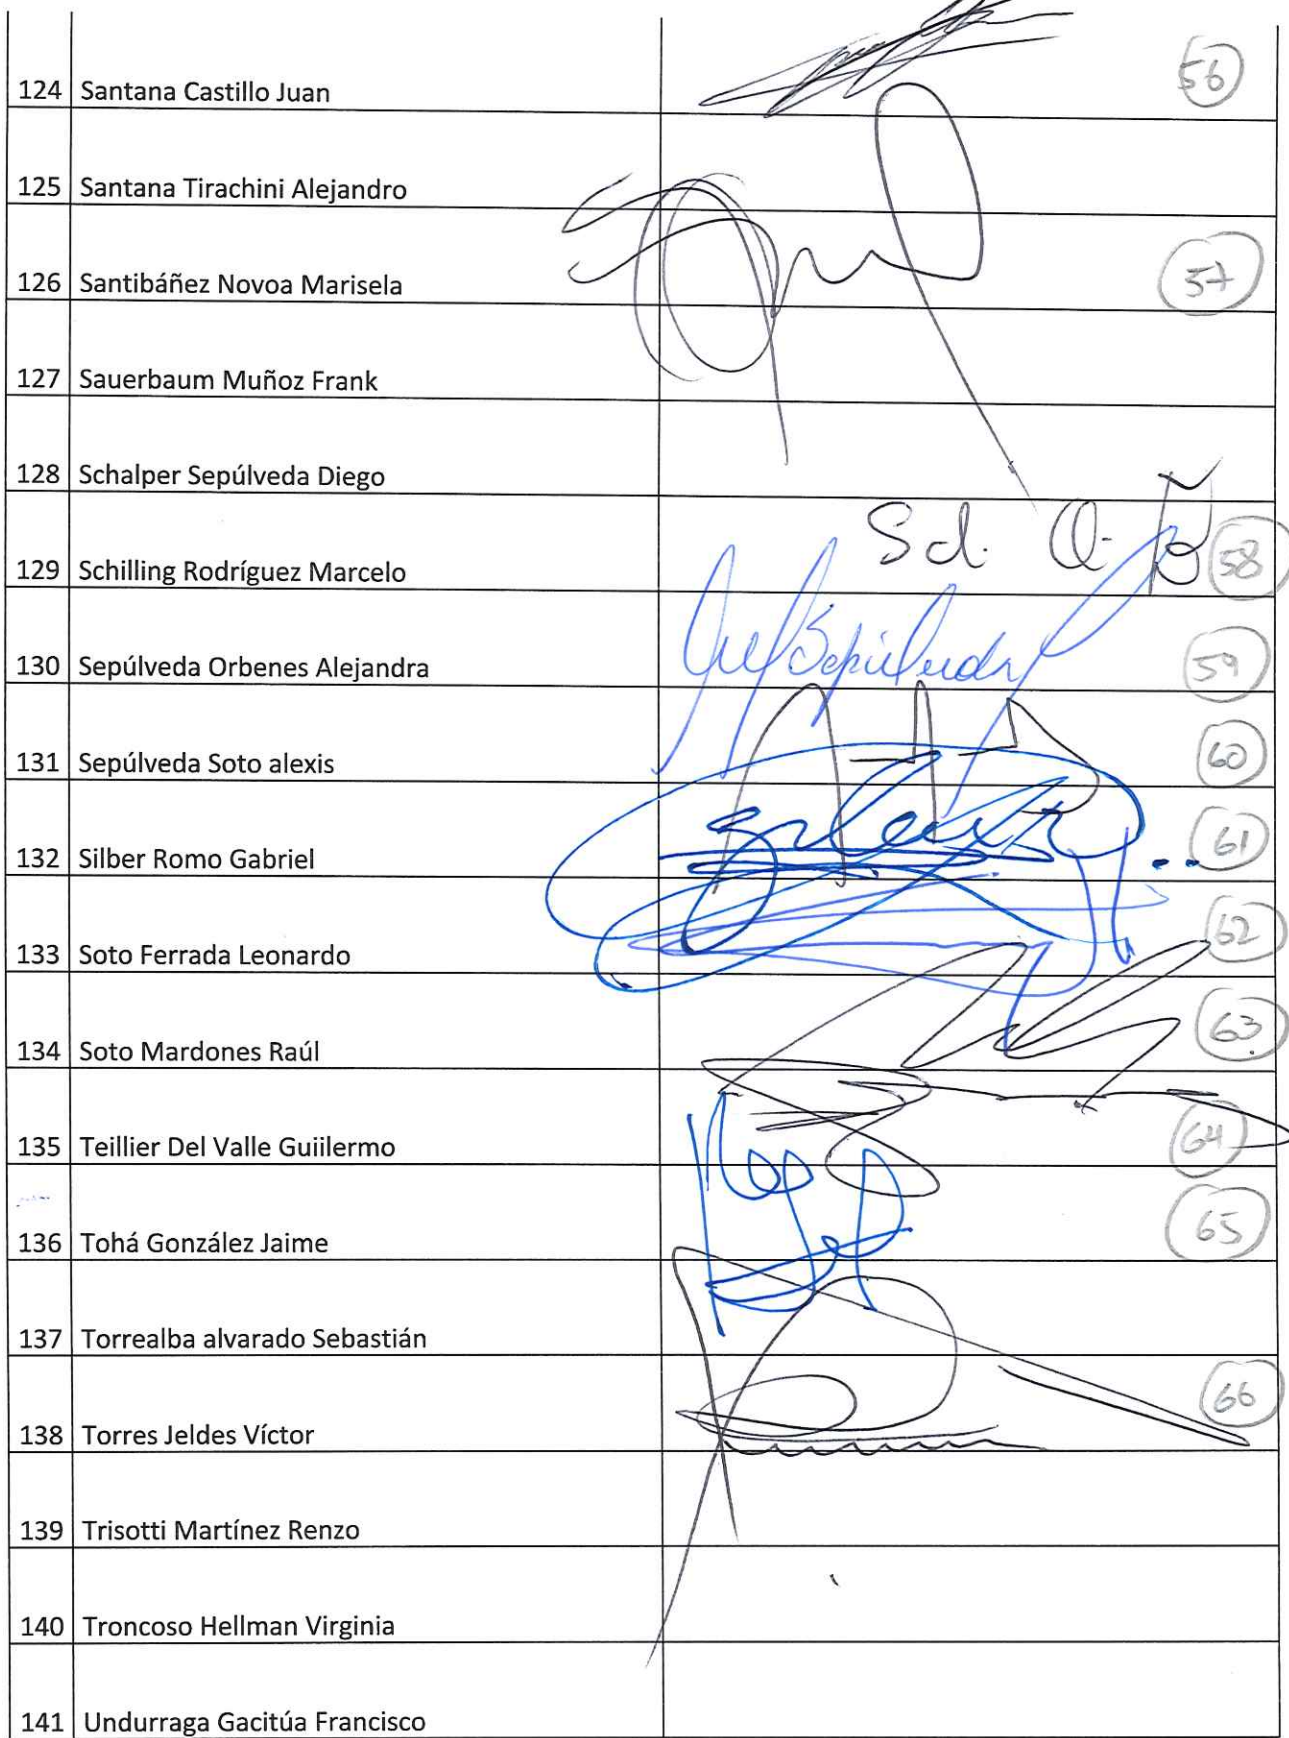 124 Santana Castillo Juan 56
125 Santana Tirachini Alejandro
126 Santibáñez Novoa Marisela 57
127 Sauerbaum Muñoz Frank
128 Schalper Sepúlveda Diego
129 Schilling Rodríguez Marcelo 58
130 Sepúlveda Orbenes Alejandra Sepúlveda 59
131 Sepúlveda Soto alexis 60
132 Silber Romo Gabriel 61
133 Soto Ferrada Leonardo 62
134 Soto Mardones Raúl 63
135 Teillier Del Valle Guiilermo 64
136 Tohá González Jaime 65
137 Torrealba alvarado Sebastián
138 Torres Jeldes Víctor 66
139 Trisotti Martínez Renzo
140 Troncoso Hellman Virginia
141 Undurraga Gacitúa Francisco